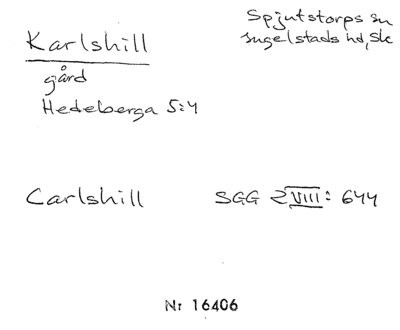 Karlshill
Spjutstorps sn
Ingelstads hd, Sk
gård
Hedeberga 5:4
Carlshill SGG 2 VIII: 644
Nr 16406